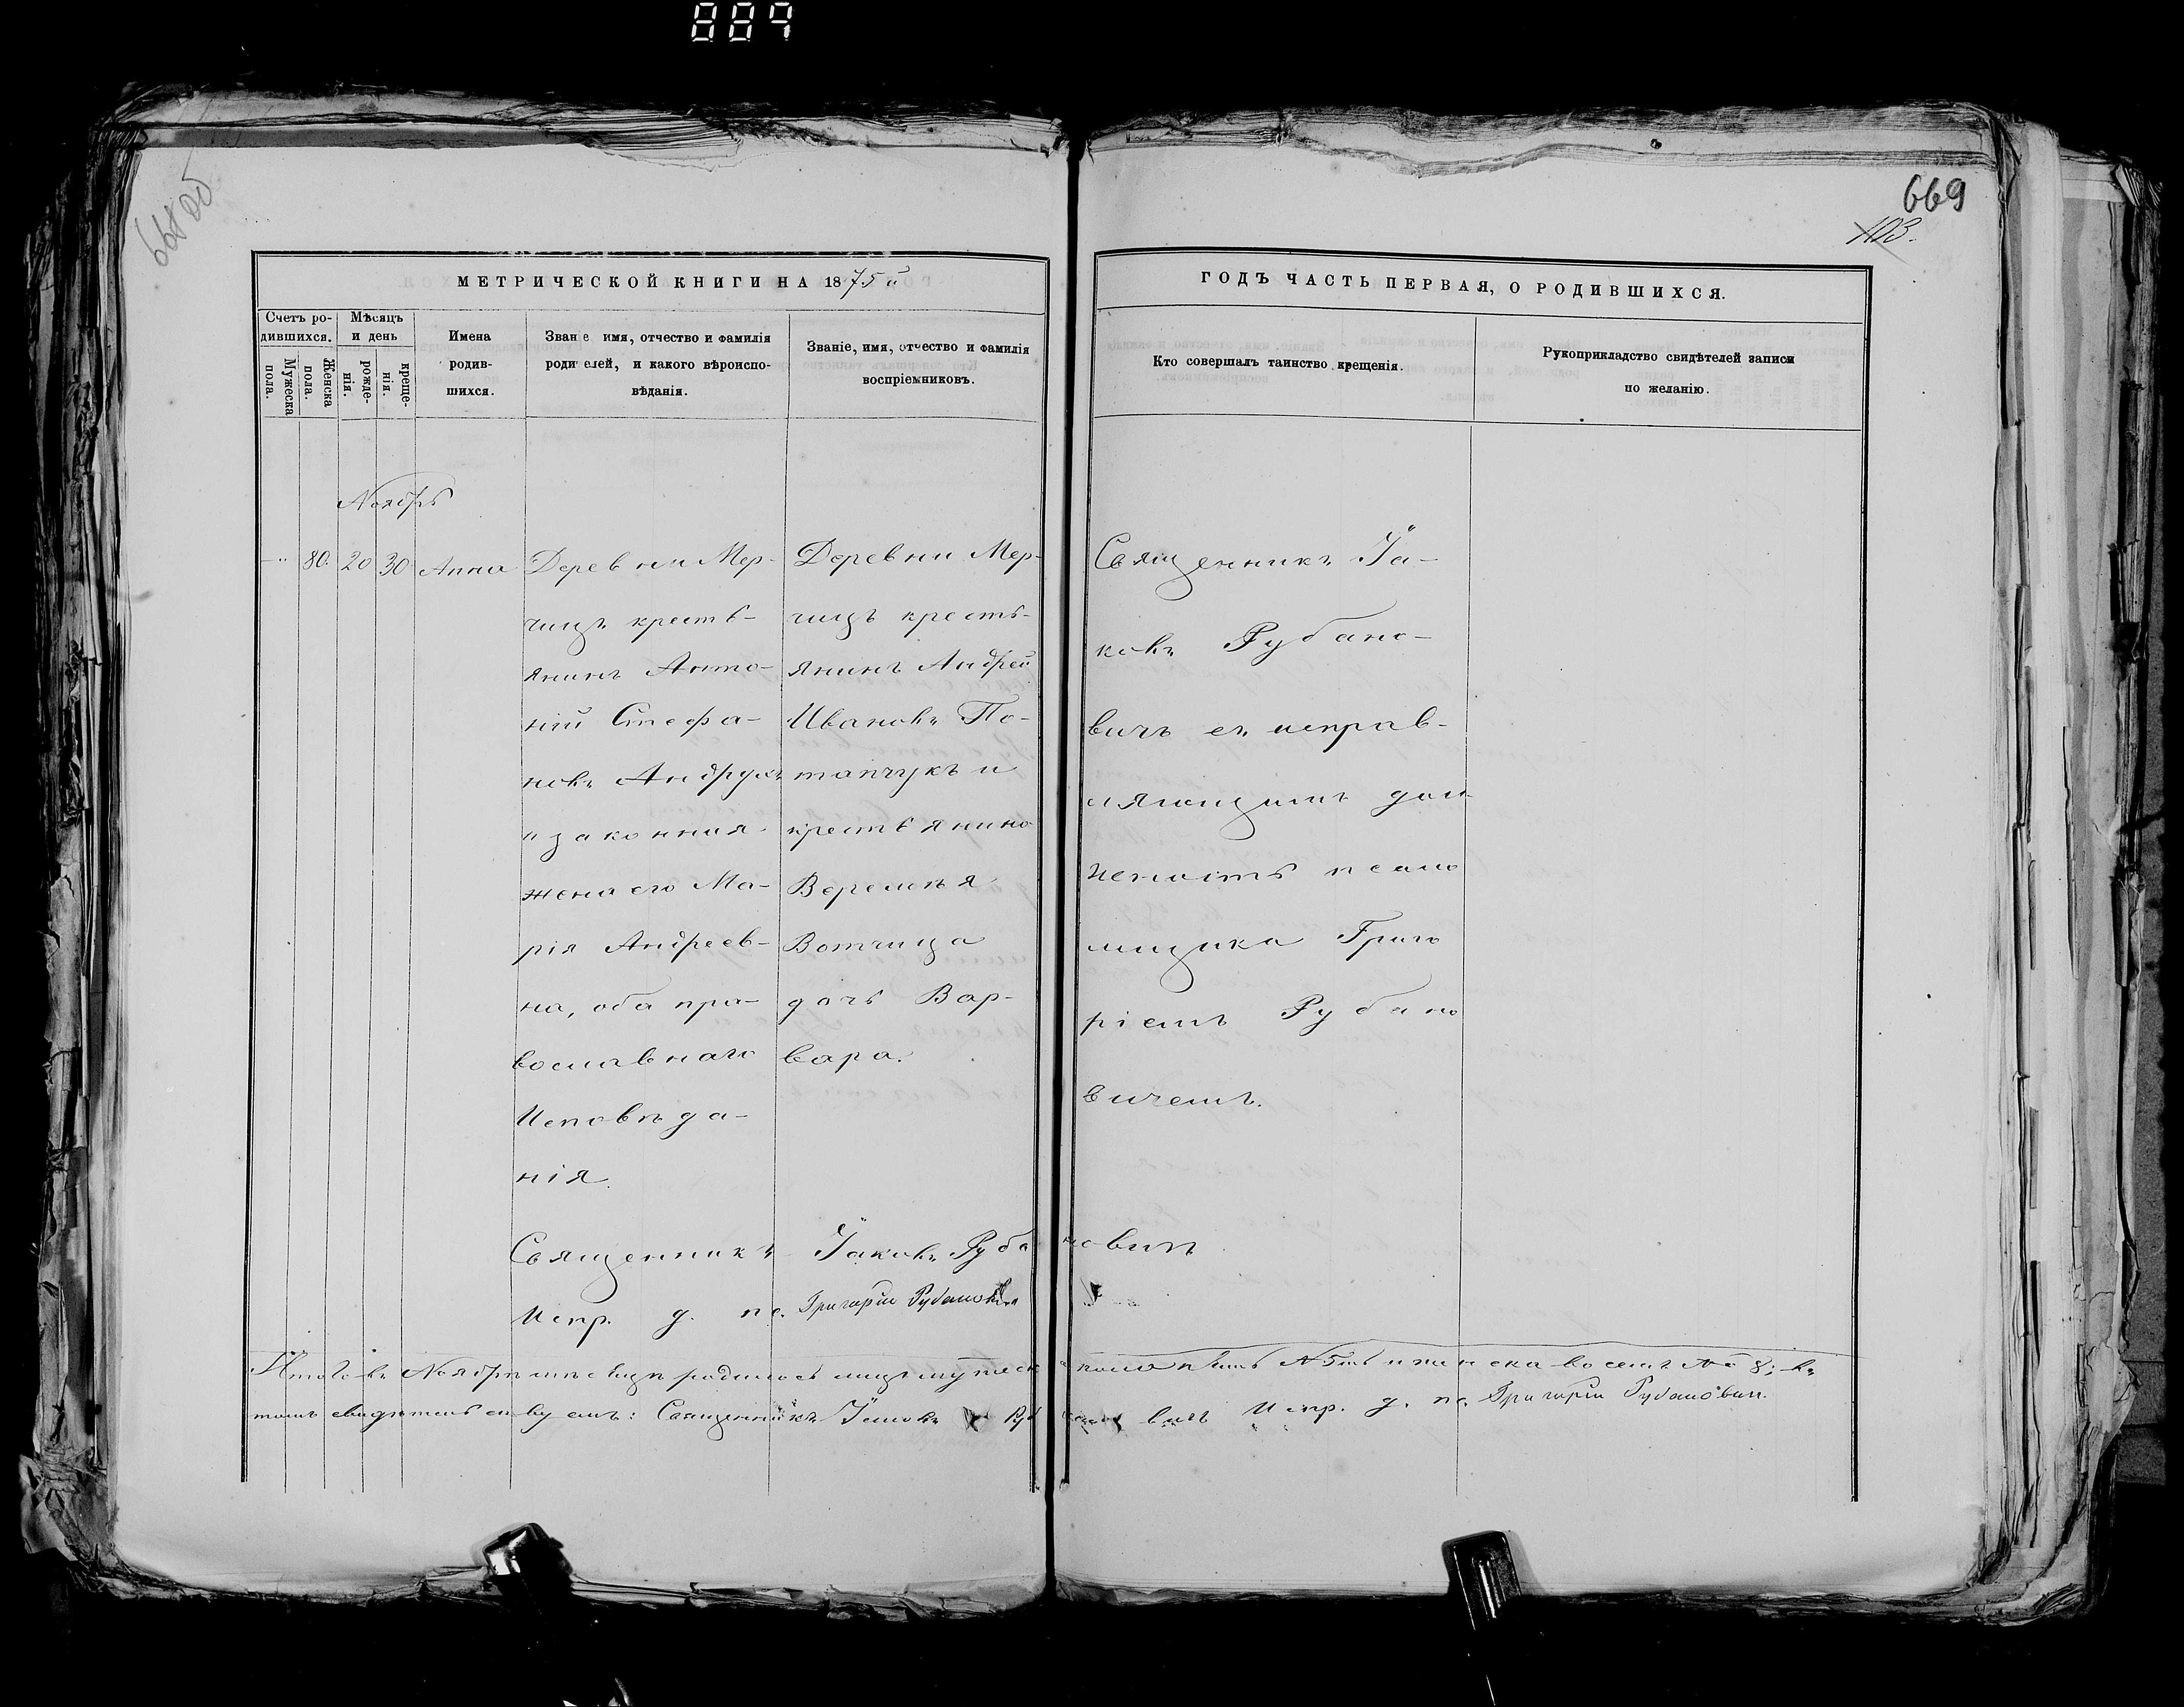 889
668 об
669
103.
МЕТРИЧЕСКОЙ КНИГИ НА 1875 й
ГОДЪ ЧАСТЬ ПЕРВАЯ, О РОДИВШИХСЯ.
Счетъ ро-
дившихся.
Мужеска
пола.
Женска
пола.
Мѣсяцъ
и день
рожде-
нія.
креще-
нія.
Имена
родив-
шихся.
Зван е имя, отчество и фамилія
роди елей, и какого вѣроиспо-
вѣданія.
Званіе, имя, отчество и фамилія
воспріемниковъ.
Кто совершалъ таинство крещенія.
Рукоприкладство свидѣтелей записи
по желанію.
Ноябрь
80. 20 30 Анна
Деревни Мер-
чицъ кресть-
янинъ Анто-
ній Стефа-
новъ Андрух
и законная
жена его Ма-
рія Андреев-
на, оба пра-
вославнаго
Исповѣда-
нія.
Деревни Мер-
чицъ кресть-
янинъ Андрей
Ивановъ По-
тапчукъ и
крестьянина
Веремѣя
Вотчица
дочь Вар-
вара.
Священникъ Іа-
ковъ Рубано-
вичъ съ исправ-
ляющимъ дол
жность псало
мщика Григо
ріемъ Рубано
вичемъ.
Священникъ Іаковъ Рубановичъ
Испр. д. пс. Григорій Рубановичъ
Итого въ Ноябрѣ мѣсяцѣ родилось лицъ мужеска пола пять № 5ть и женска восемь № 8; въ
томъ свидѣтельствуемъ: Священникъ Іаковъ Рубановичъ Испр. д. пс. Григорій Рубановичъ.